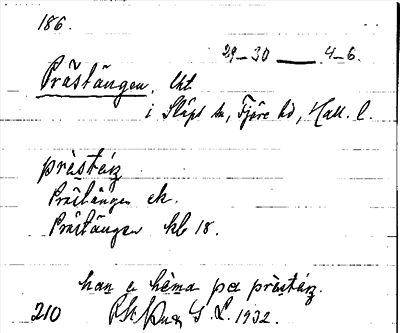 186.
29–30 — 4–6.
Prästängen, lht.
i Släps sn, Fjäre hd, Hall. l.
prèstáŋ
Prästängen ek.
Prästängen kb 18.
han e hèma pa prèstáŋ.
210 G. L. 1932.